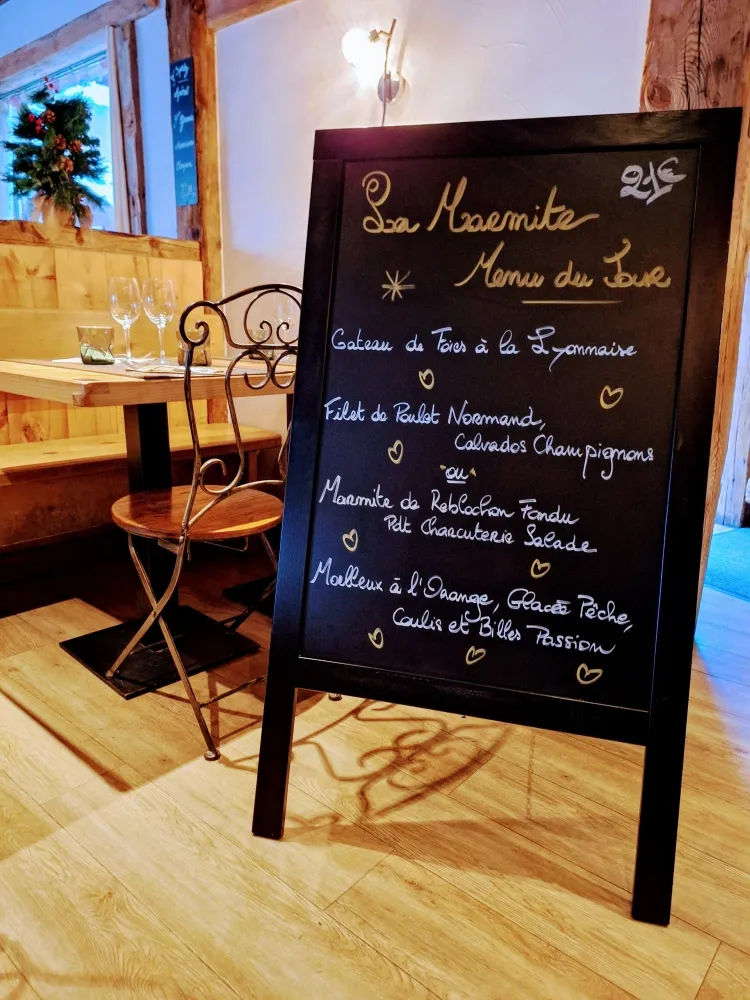 La Marmite
21€
Menu du Jour
Gateau de Foies à la Lyonnaise
Filet de Poulet Normand,
Calvados Champignons
"ou"
Marmite de Reblochon Fondu
Pdt Charcuterie Salade
Moelleux à l'Orange, Glacée Pêche,
Coulis et Billes Passion